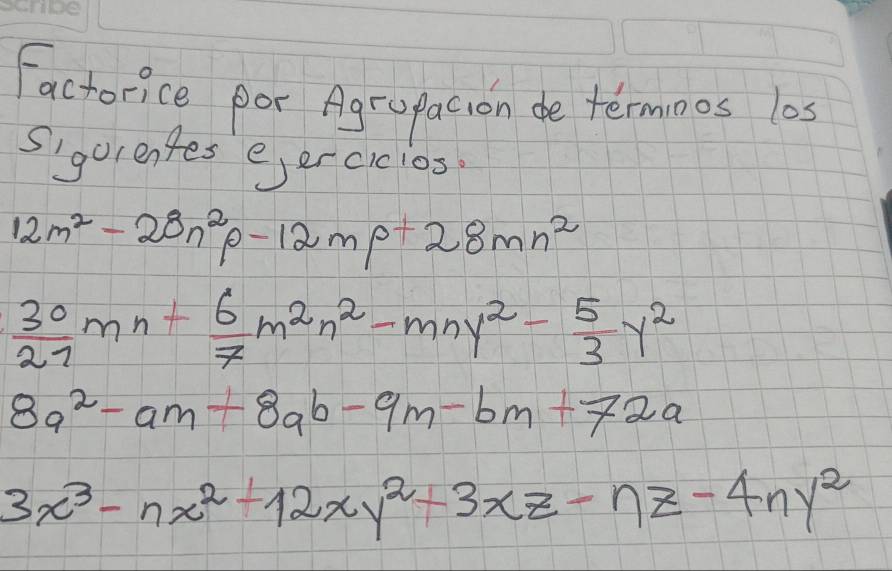 scribe
Factorice por Agrupación de términos los
Siguientes ejercicios.
12m² - 28n²p - 12mp + 28mn²
30/21 mn + 6/7 m²n² - mny² - 5/3 y²
8a² - am + 8ab - 9m - bm + 72a
3x³ - nx² + 12xy² + 3xz - nz - 4ny²